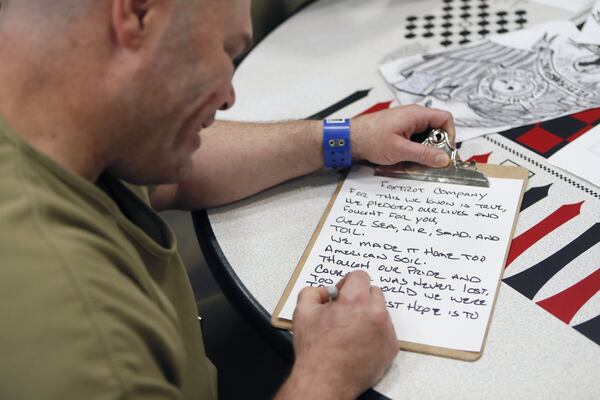 FOXTROT COMPANY
FOR THIS WE KNOW IS TRUE,
WE PLEDGED OUR LIVES AND
FOUGHT FOR YOU,
OVER SEA, AIR, SAND, AND
TOIL.
WE MADE IT HOME TOO
AMERICAN SOIL.
THOUGHT OUR PRIDE AND
COURAGE WAS NEVER LOST,
WORLD WE WERE
HOPE IS TO